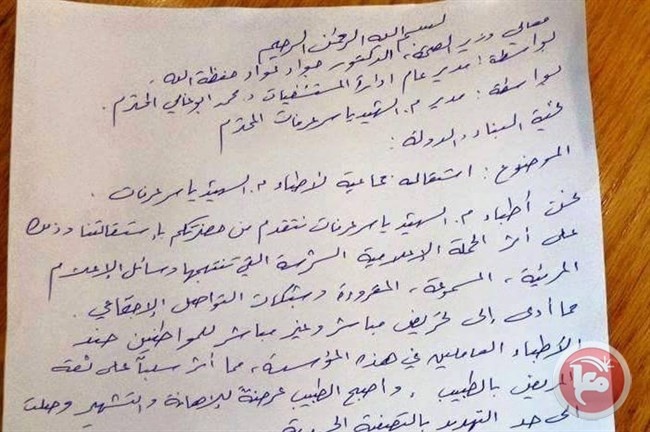 بسم الله الرحمن الرحيم
معالي وزير الصحة، الدكتور جواد عواد حفظه الله.
بواسطة: مدير عام ادارة المستشفيات د. محمد ابو غالي المحترم.
بواسطة: مدير م. الشهيد ياسر عرفات المحترم
تحية البناء والدولة:
الموضوع: استقالة جماعية لأطباء م. الشهيد ياسر عرفات.
نحن أطباء م. الشهيد ياسر عرفات نتقدم من حضرتكم بإستقالتنا وذلك
على أثر الحملة الإعلامية الشرسة التي تنتهجها وسائل الإعلام
المرئية، المسموعة، المقروءة وشبكات التواصل الإجتماعي.
مما أدى إلى تحريض مباشر وغير مباشر للمواطنين ضد
الأطباء العاملين في هذه المؤسسة، مما أثر سلباً على ثقة
المريض بالطبيب. وأصبح الطبيب عرضةً للإهانة والتشهير وصلت
الى حد التهديد بالتصفية الجسدية
معا